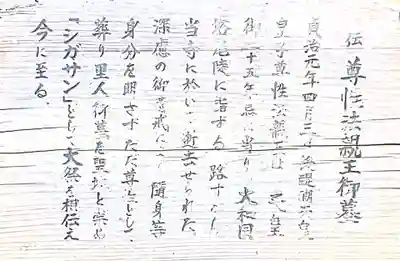 伝 尊性法親王御墓
貞治元年四月三 後醍醐天皇
皇子尊性法親王は 天皇
御二十五年 忌に当り 大和国
塔尾陵に詣する 路すがら
当寺に於いて 薨去せられた
深慮の御 戒に 随身等
身分を明さずただ尊 として
葬り里人御墓を聖地と崇め
「シガサン」として 大祭を相伝え
今に至る。